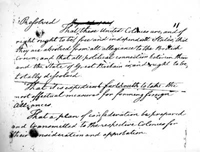 Resolved
That these United Colonies are, and of
right ought to be, free and independent States, that
they are absolved from all allegiance to the British
Crown, and that all political connection between them
and the State of Great Britain is and ought to be,
totally dissolved.
That it is expedient forthwith to take the
most effectual measures for forming foreign
Alliances.
That a plan of confederation be prepared
and transmitted to the respective Colonies for
their consideration and approbation.